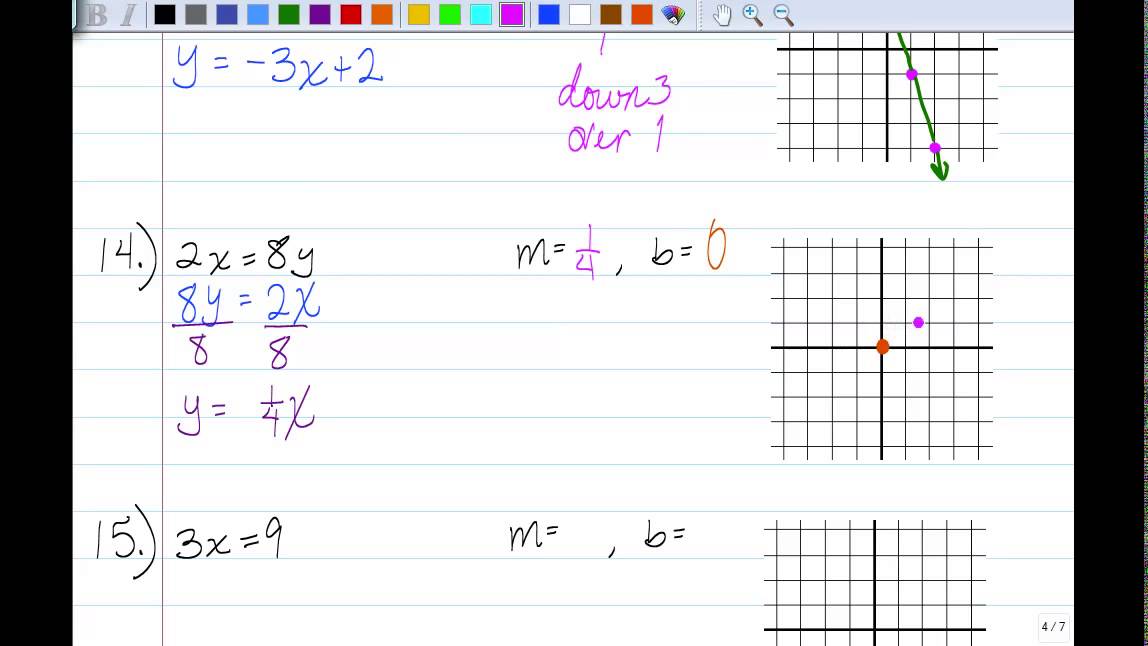 B I
y = -3x+2
1
down 3
over 1
14.) 2x = 8y m= 1/4 , b= 0
8y = 2x
8 8
y = 1/4 x
15.) 3x = 9 m= , b=
4 / 7